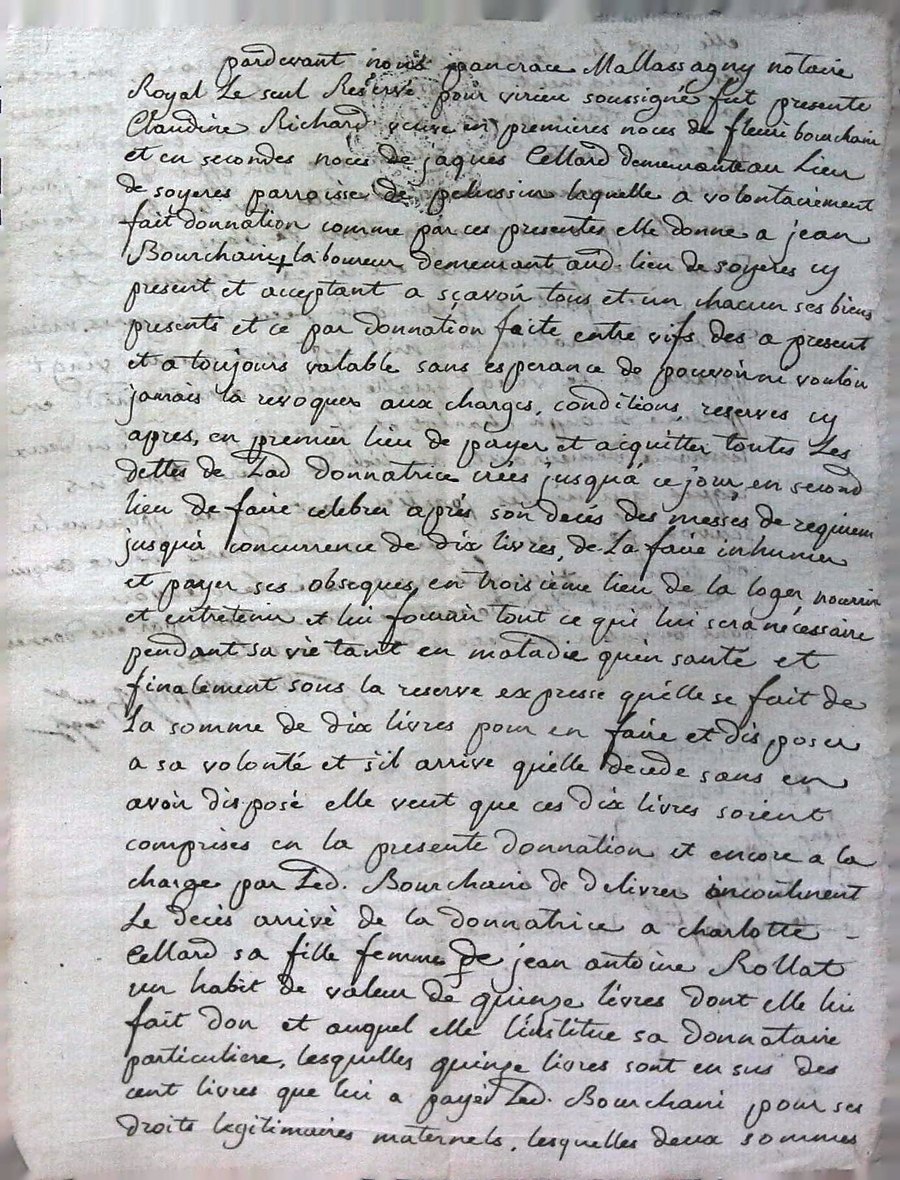 pardevant nous pancrace Mallassagny notaire
Royal Le seul Reservé pour virieu soussigné fut presente
Claudine Richard veuve en premieres noces de fleuri bourchani
et en secondes noces de jaques Cellard demeurante au Lieu
de soyeres parroisse de pelussin laquelle a volontairement
fait donnation comme par ces presentes elle donne a jean
Bourchani + laboureur demeurant aud. lieu de soyeres cy
present et acceptant a sçavoir tous et un chacun ses biens
presents et ce par donnation faite entre vifs des a present
et a toujours valable sans esperance de pouvoir ni vouloir
jamais la revoquer aux charges, conditions, reserves cy
apres, en premier lieu de payer et acquitter toutes Les
dettes de Lad donnatrice créés jusqu'à ce jour, en second
lieu de faire celebrer après son decés des messes de requiem
jusqua concurrence de dix livres, de La faire inhumer
et payer ses obseques, en troisieme lieu de la loger nourrir
et entretenir et lui fournir tout ce qui lui sera nécessaire
pendant sa vie tant en maladie qu'en santé et
finalement sous la reserve expresse qu'elle se fait de
La somme de dix livres pour en faire et disposer
a sa volonté et s'il arrive qu'elle decede sans en
avoir disposé elle veut que ces dix livres soient
comprises en la presente donnation et encore a la
charge par Led. Bourchani de delivrer incontinent
Le decès arrivé de la donnatrice a charlotte
Cellard sa fille femme de jean antoine Rollat
un habit de valeur de quinze livres dont elle lui
fait don et auquel elle l'institue sa donnataire
particuliere, lesquelles quinze livres sont en sus des
cent livres que lui a payér Led. Bourchani pour ses
droits legitimaires maternels, lesquelles deux sommes